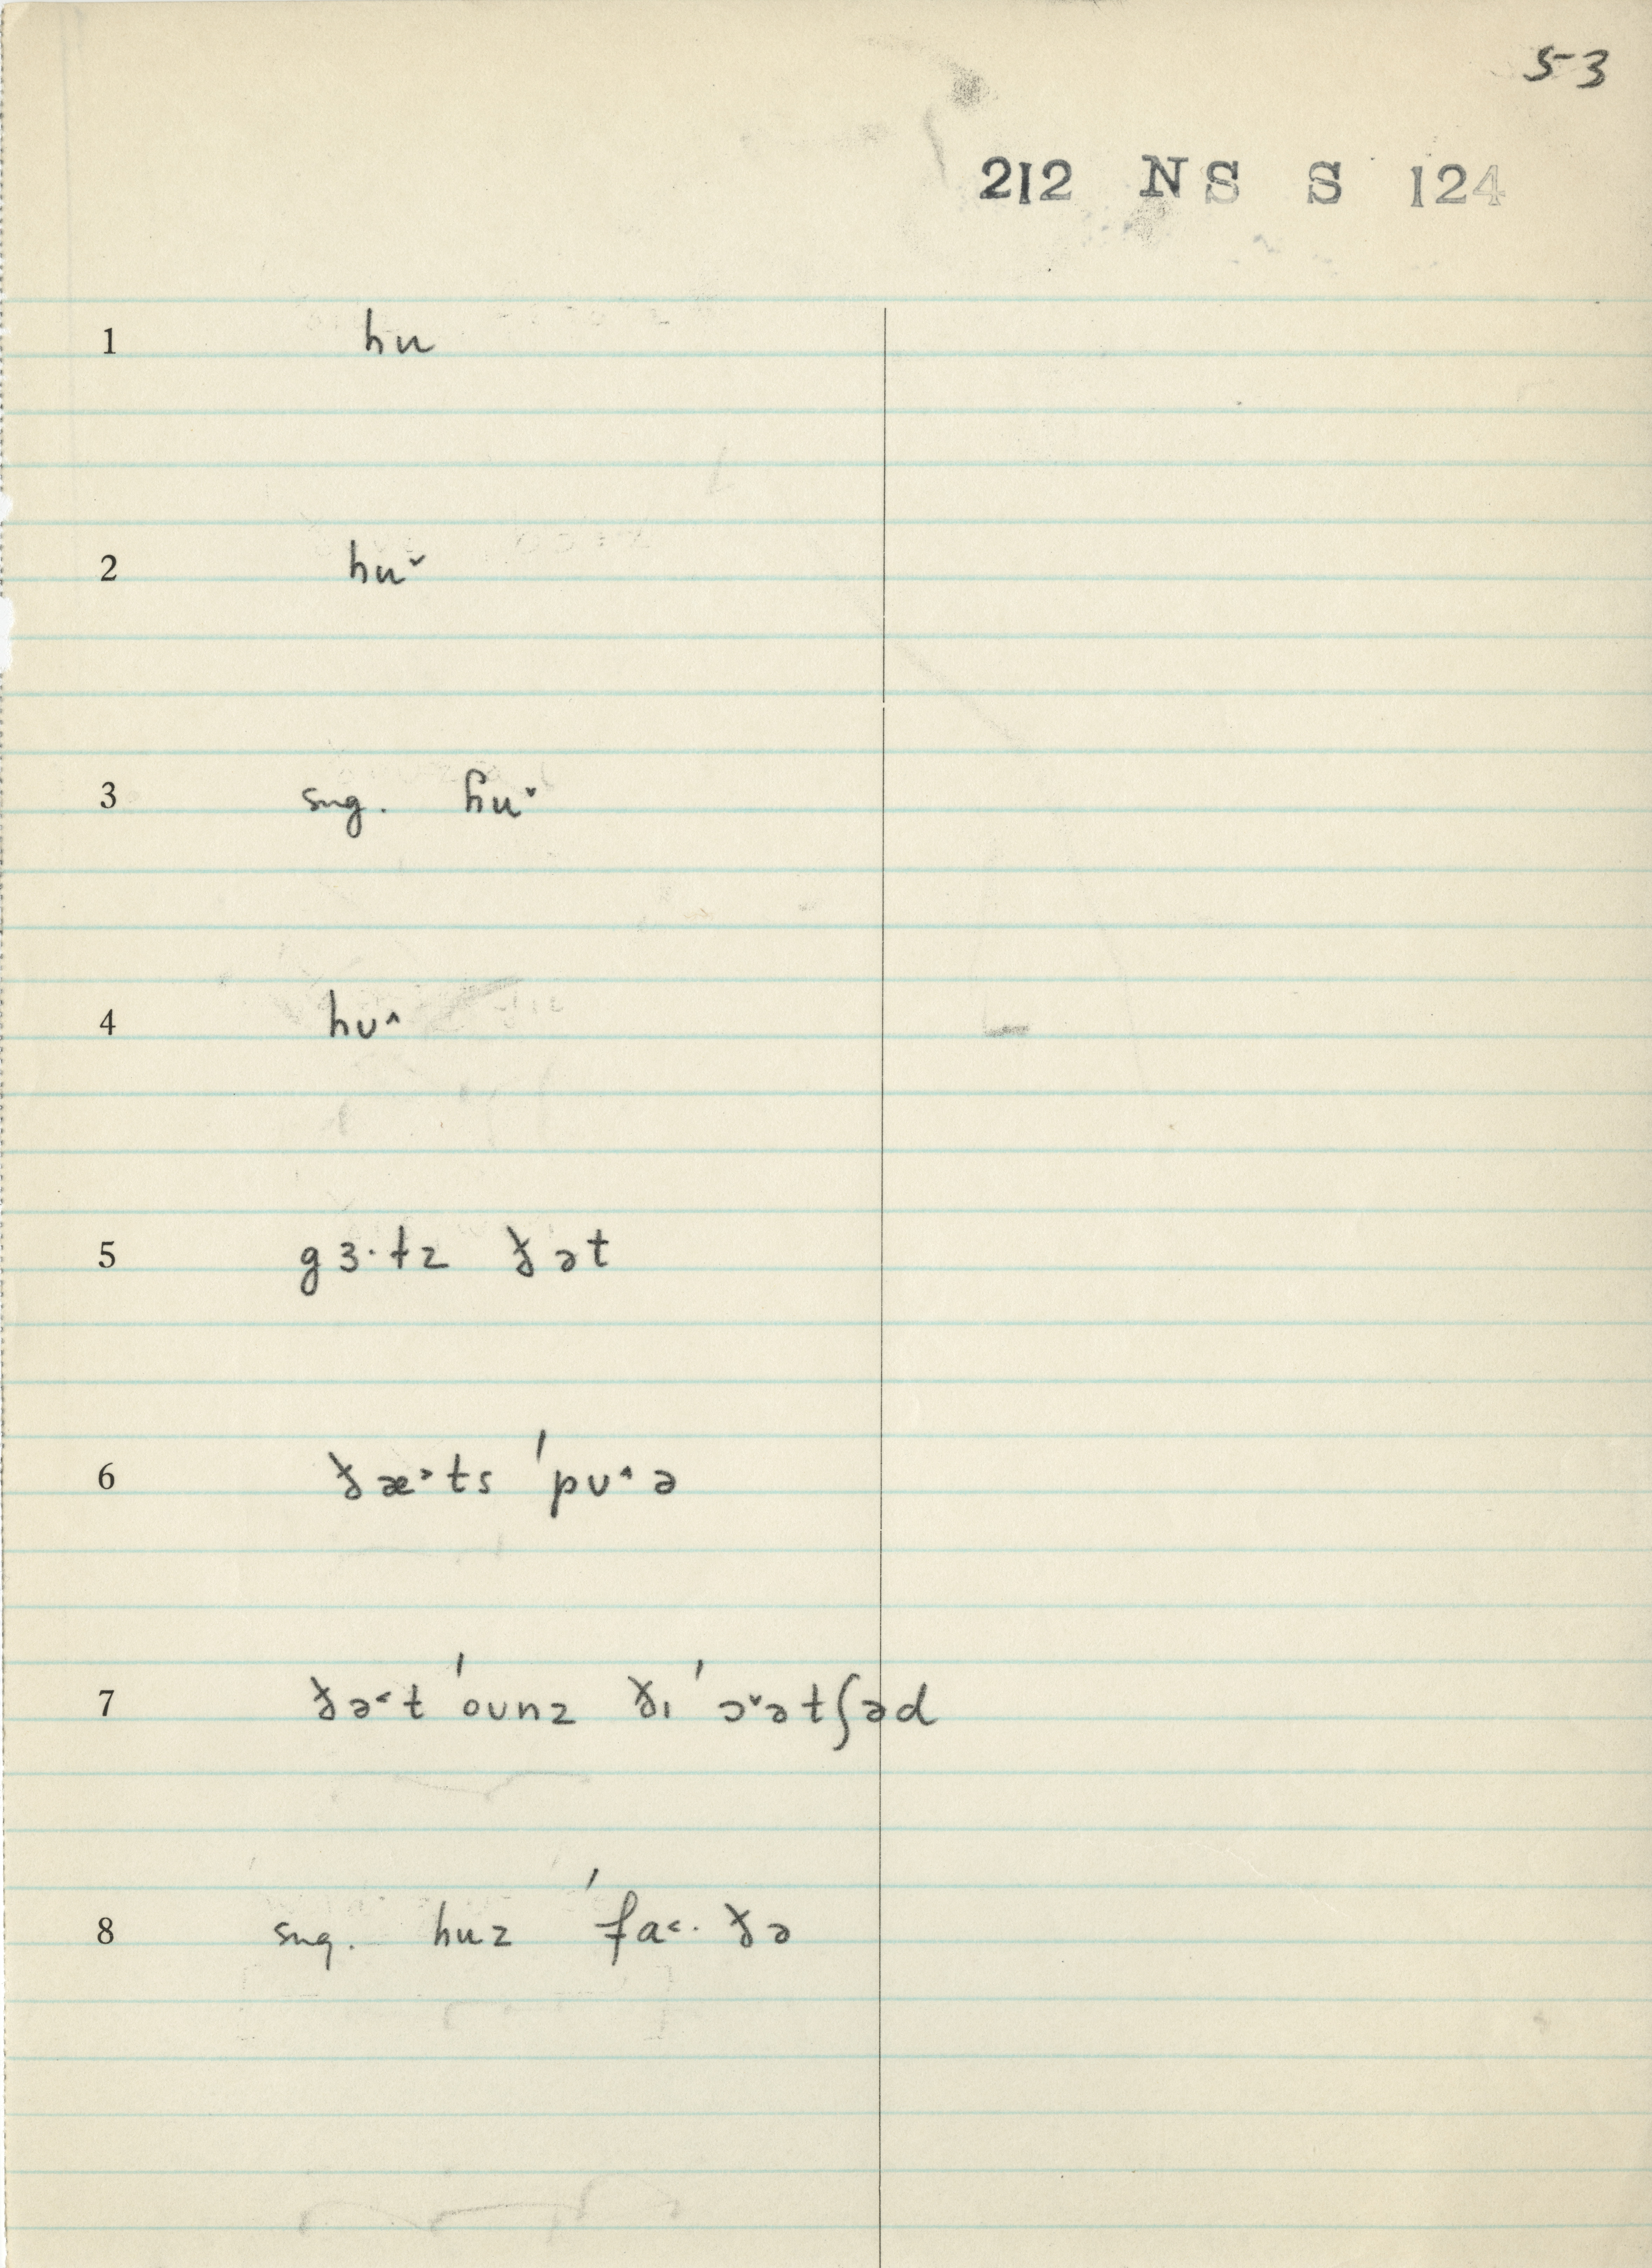 53
212 NS S 124
1 hu
2 hu˅
3 sug. ɦu˅
4 hʊ˄
5 gɜ·ɫz ðət
6 ðæ˃ts ˈpʊ˄ə
7 ðə˂t ˈoʊnz ðɪ ˈɔ˅ətʃəd
8 sug. huz ˈfa˂· ðə